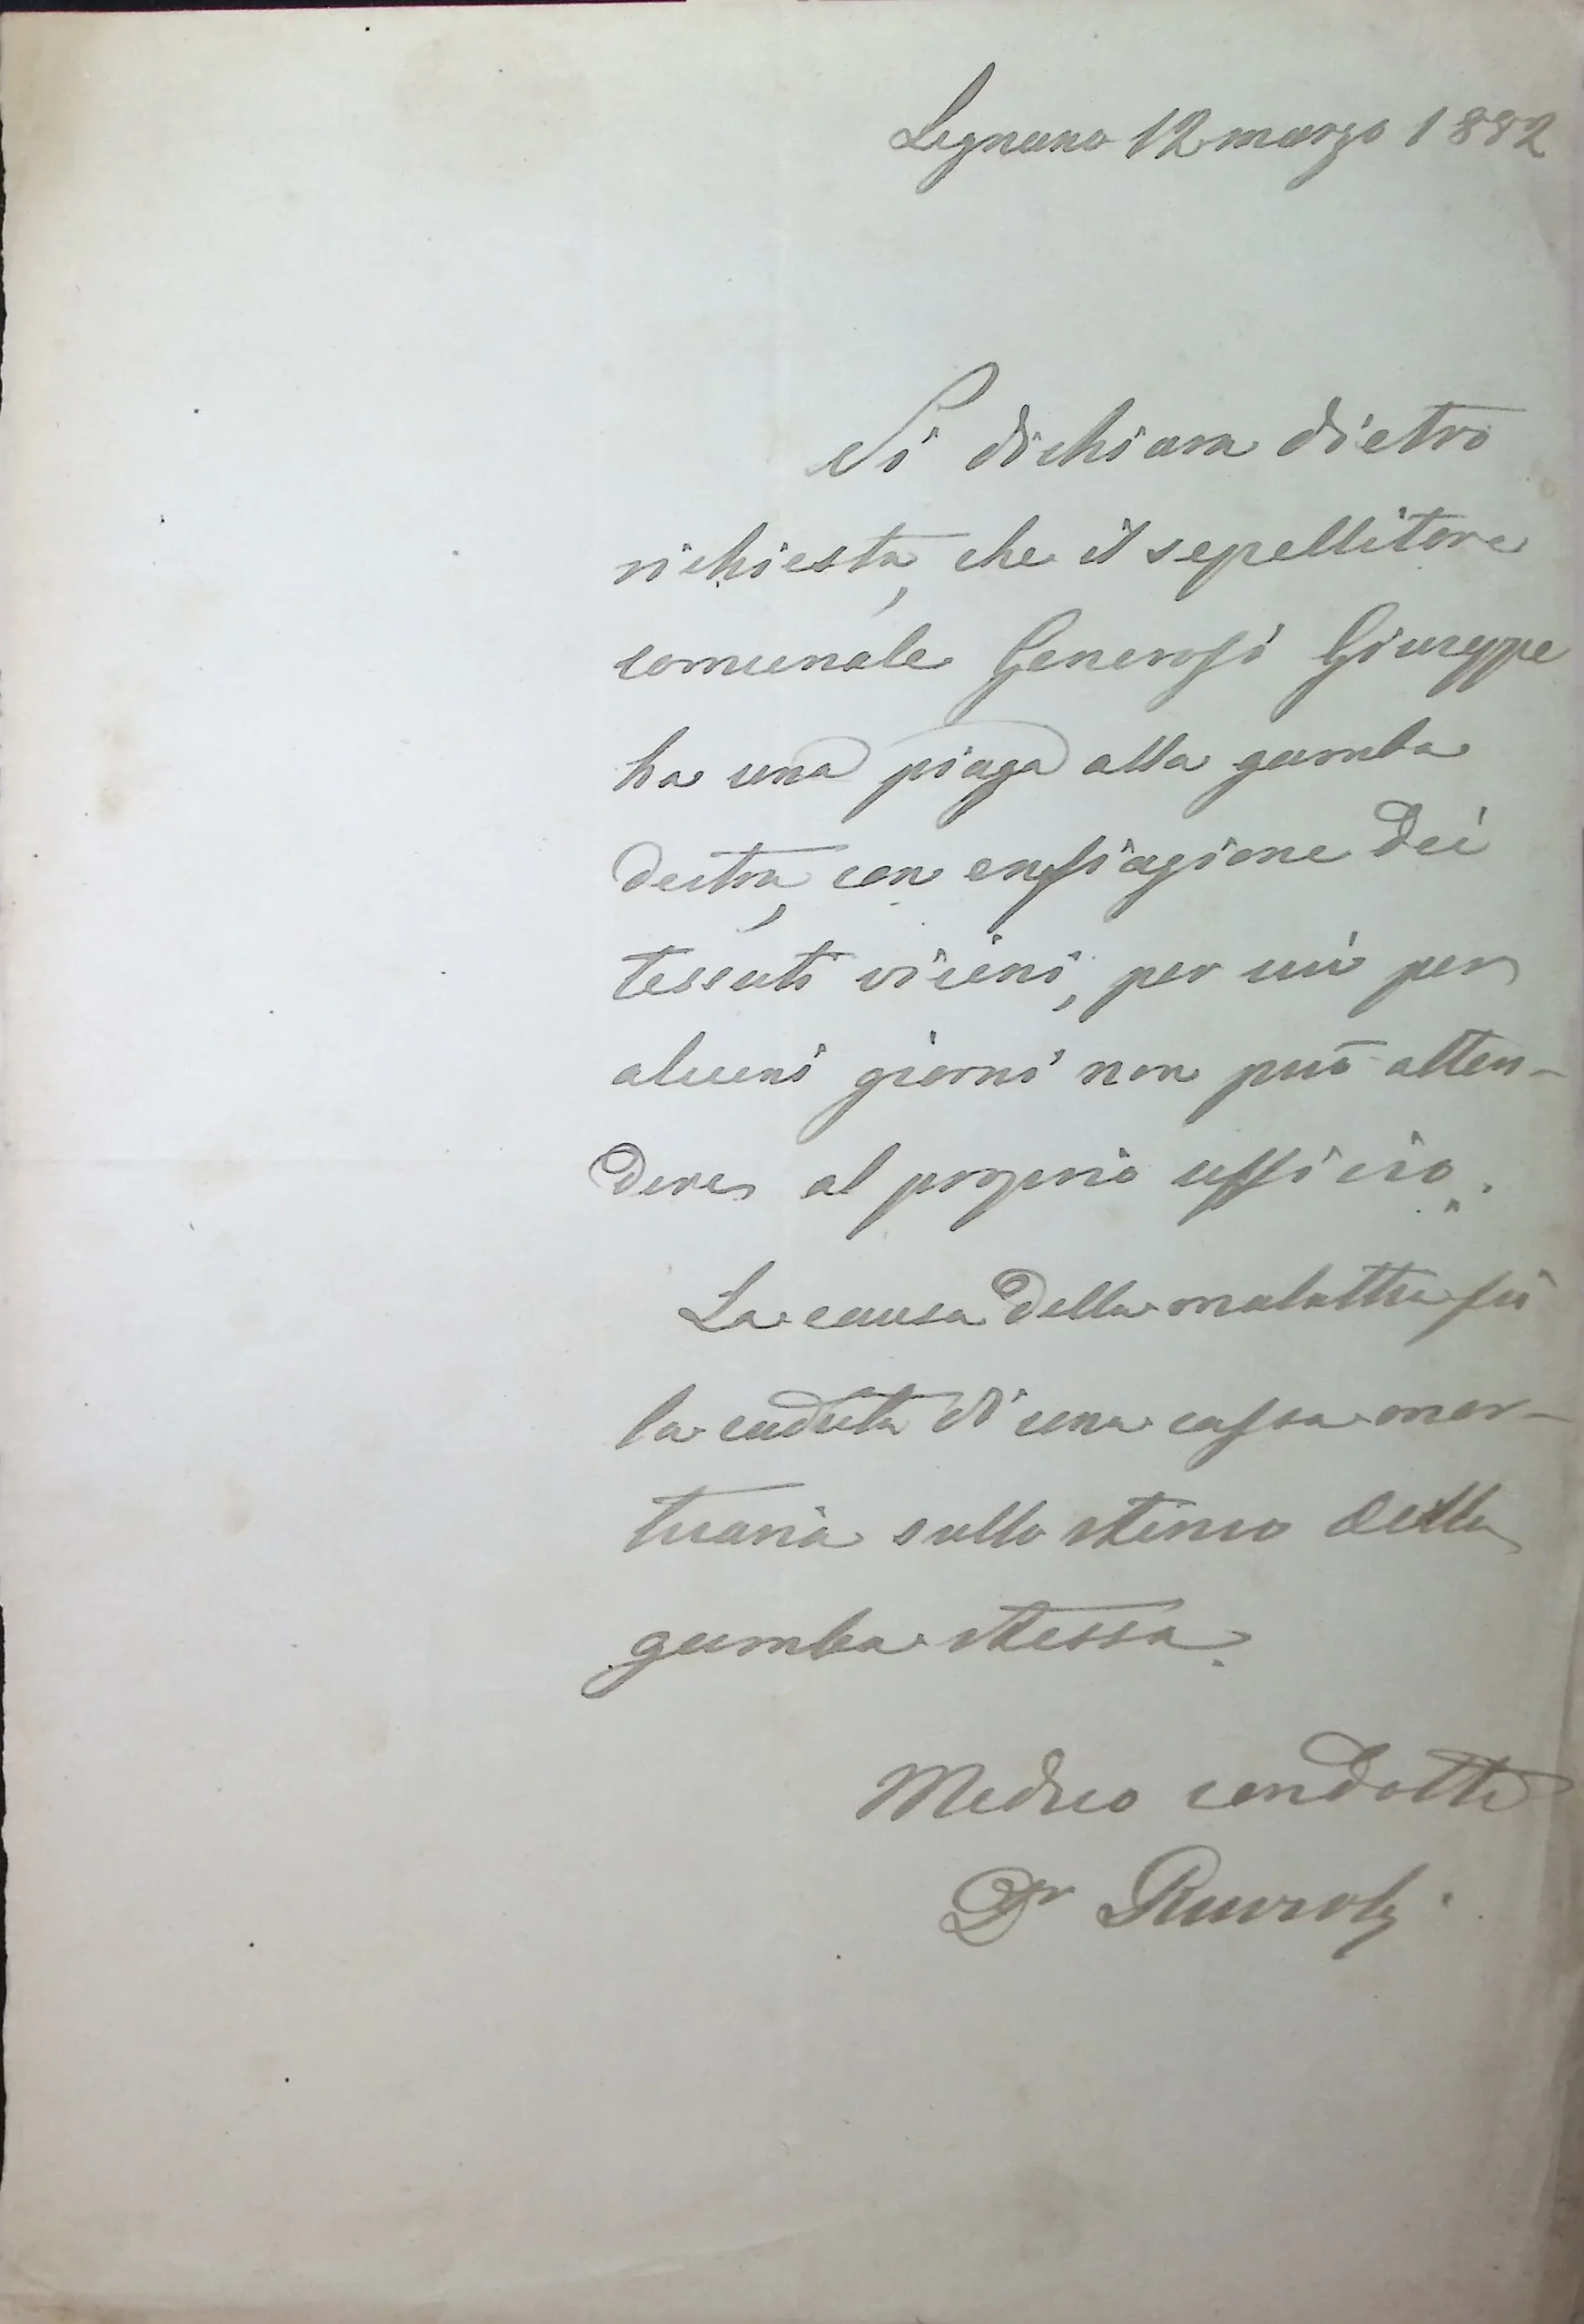 Legnano 12 marzo 1882
Si dichiara dietro
richiesta, che il sepellitore
comunale Generosi Giuseppe
ha una piaga alla gamba
destra, con enfiagione dei
tessuti vicini, per cui per
alcuni giorni non può atten-
dere al proprio ufficio.
La causa della malattia fù
la caduta di una cassa mor-
tuaria sullo stinco della
gamba stessa.
Medico condotto
Dr